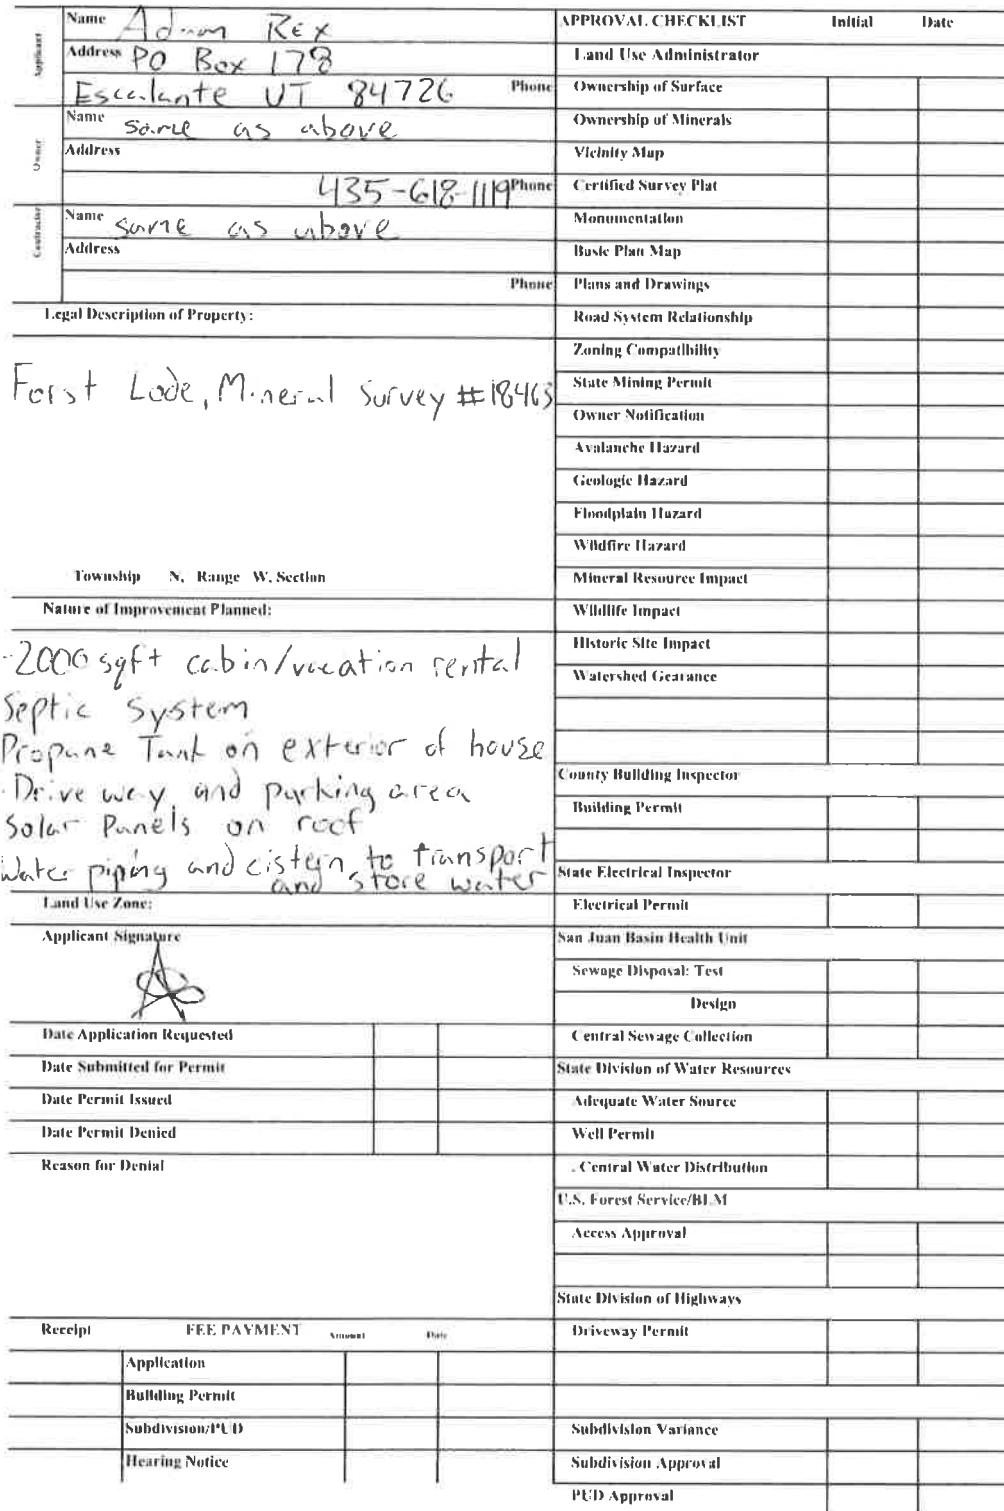 Applicant
Name Adam Rex
Address PO Box 178
Escalante UT 84726 Phone
Owner
Name same as above
Address
435-618-1119 Phone
Contractor
Name same as above
Address
Phone
Legal Description of Property:
Forst Lode, Mineral Survey #18463
Township N, Range W, Section
Nature of Improvement Planned:
-2000 sqft cabin/vacation rental
Septic System
Propane Tank on exterior of house
-Drive way and parking area
Solar Panels on roof
Water piping and cistern to transport
and store water
Land Use Zone:
Applicant Signature
Date Application Requested
Date Submitted for Permit
Date Permit Issued
Date Permit Denied
Reason for Denial
Receipt FEE PAYMENT Amount Date
Application
Building Permit
Subdivision/PUD
Hearing Notice
APPROVAL CHECKLIST Initial Date
Land Use Administrator
Ownership of Surface
Ownership of Minerals
Vicinity Map
Certified Survey Plat
Monumentation
Basic Plan Map
Plans and Drawings
Road System Relationship
Zoning Compatibility
State Mining Permit
Owner Notification
Avalanche Hazard
Geologic Hazard
Floodplain Hazard
Wildfire Hazard
Mineral Resource Impact
Wildlife Impact
Historic Site Impact
Watershed Gearance
County Building Inspector
Building Permit
State Electrical Inspector
Electrical Permit
San Juan Basin Health Unit
Sewage Disposal: Test
Design
Central Sewage Collection
State Division of Water Resources
Adequate Water Source
Well Permit
. Central Water Distribution
U.S. Forest Service/BLM
Access Approval
State Division of Highways
Driveway Permit
Subdivision Variance
Subdivision Approval
PUD Approval